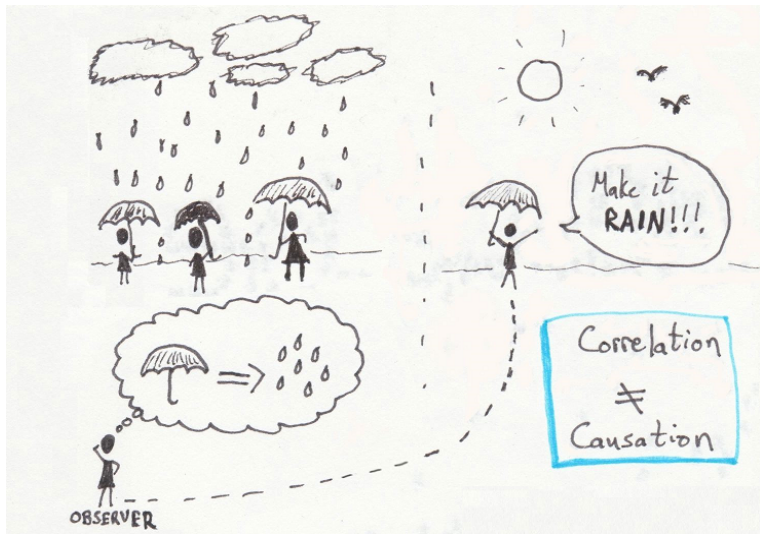 Make it
RAIN!!!
Correlation
≠
Causation
OBSERVER